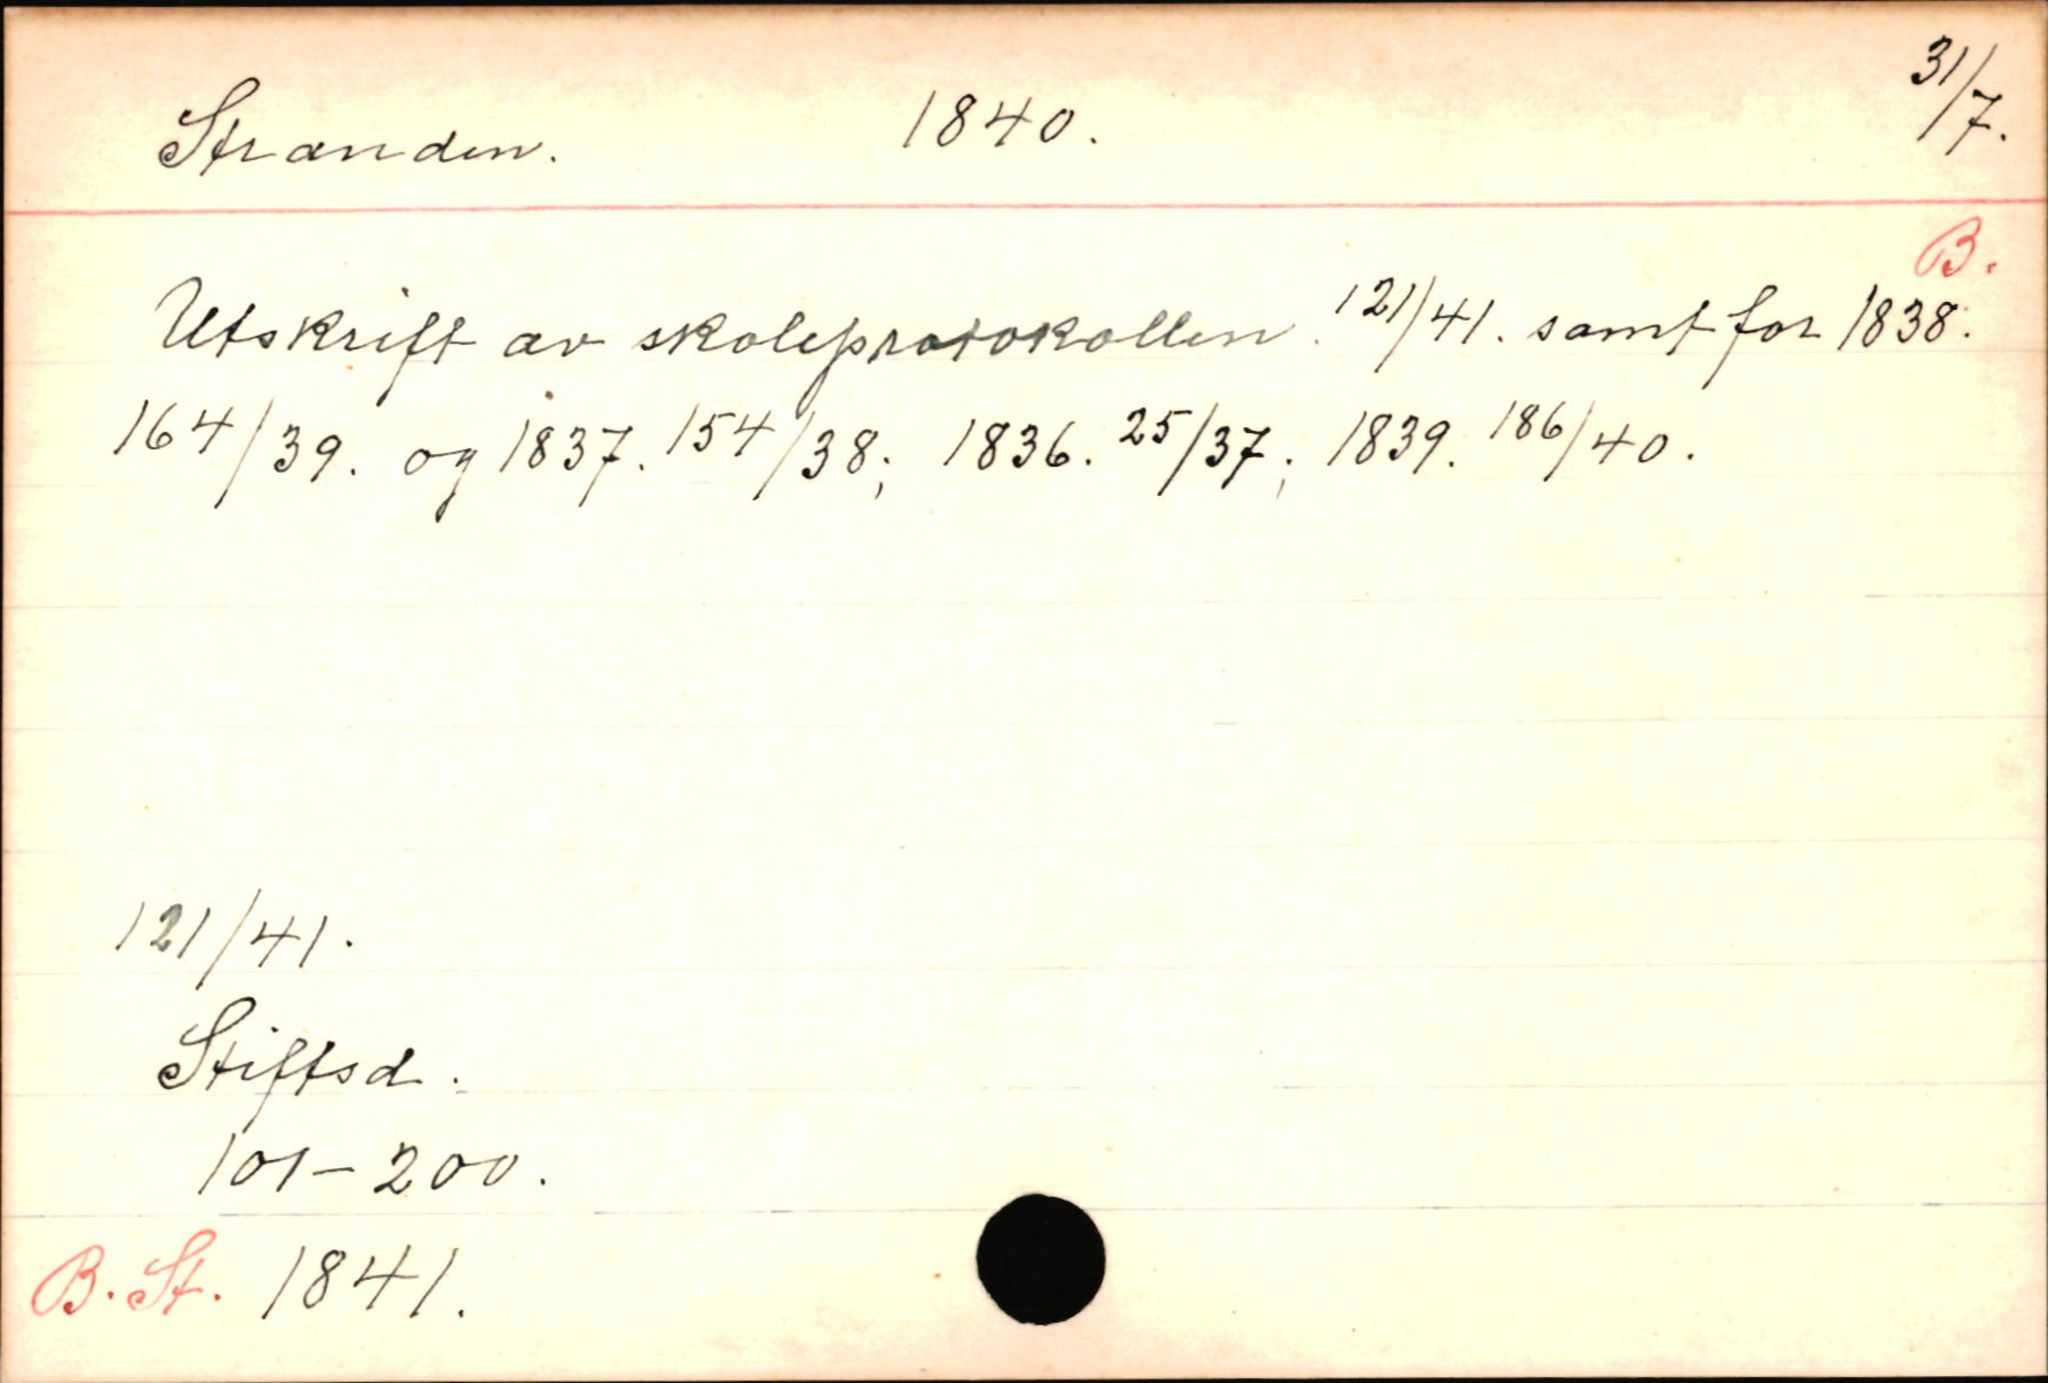 Stranden. 1840. 31/7.
B.
Utskrift av skoleprotokollen. 121/41. samt for 1838.
164/39. og 1837. 154/38; 1836. 25/37; 1839. 186/40.
121/41.
Stiftsd.
101-200.
B. St. 1841.